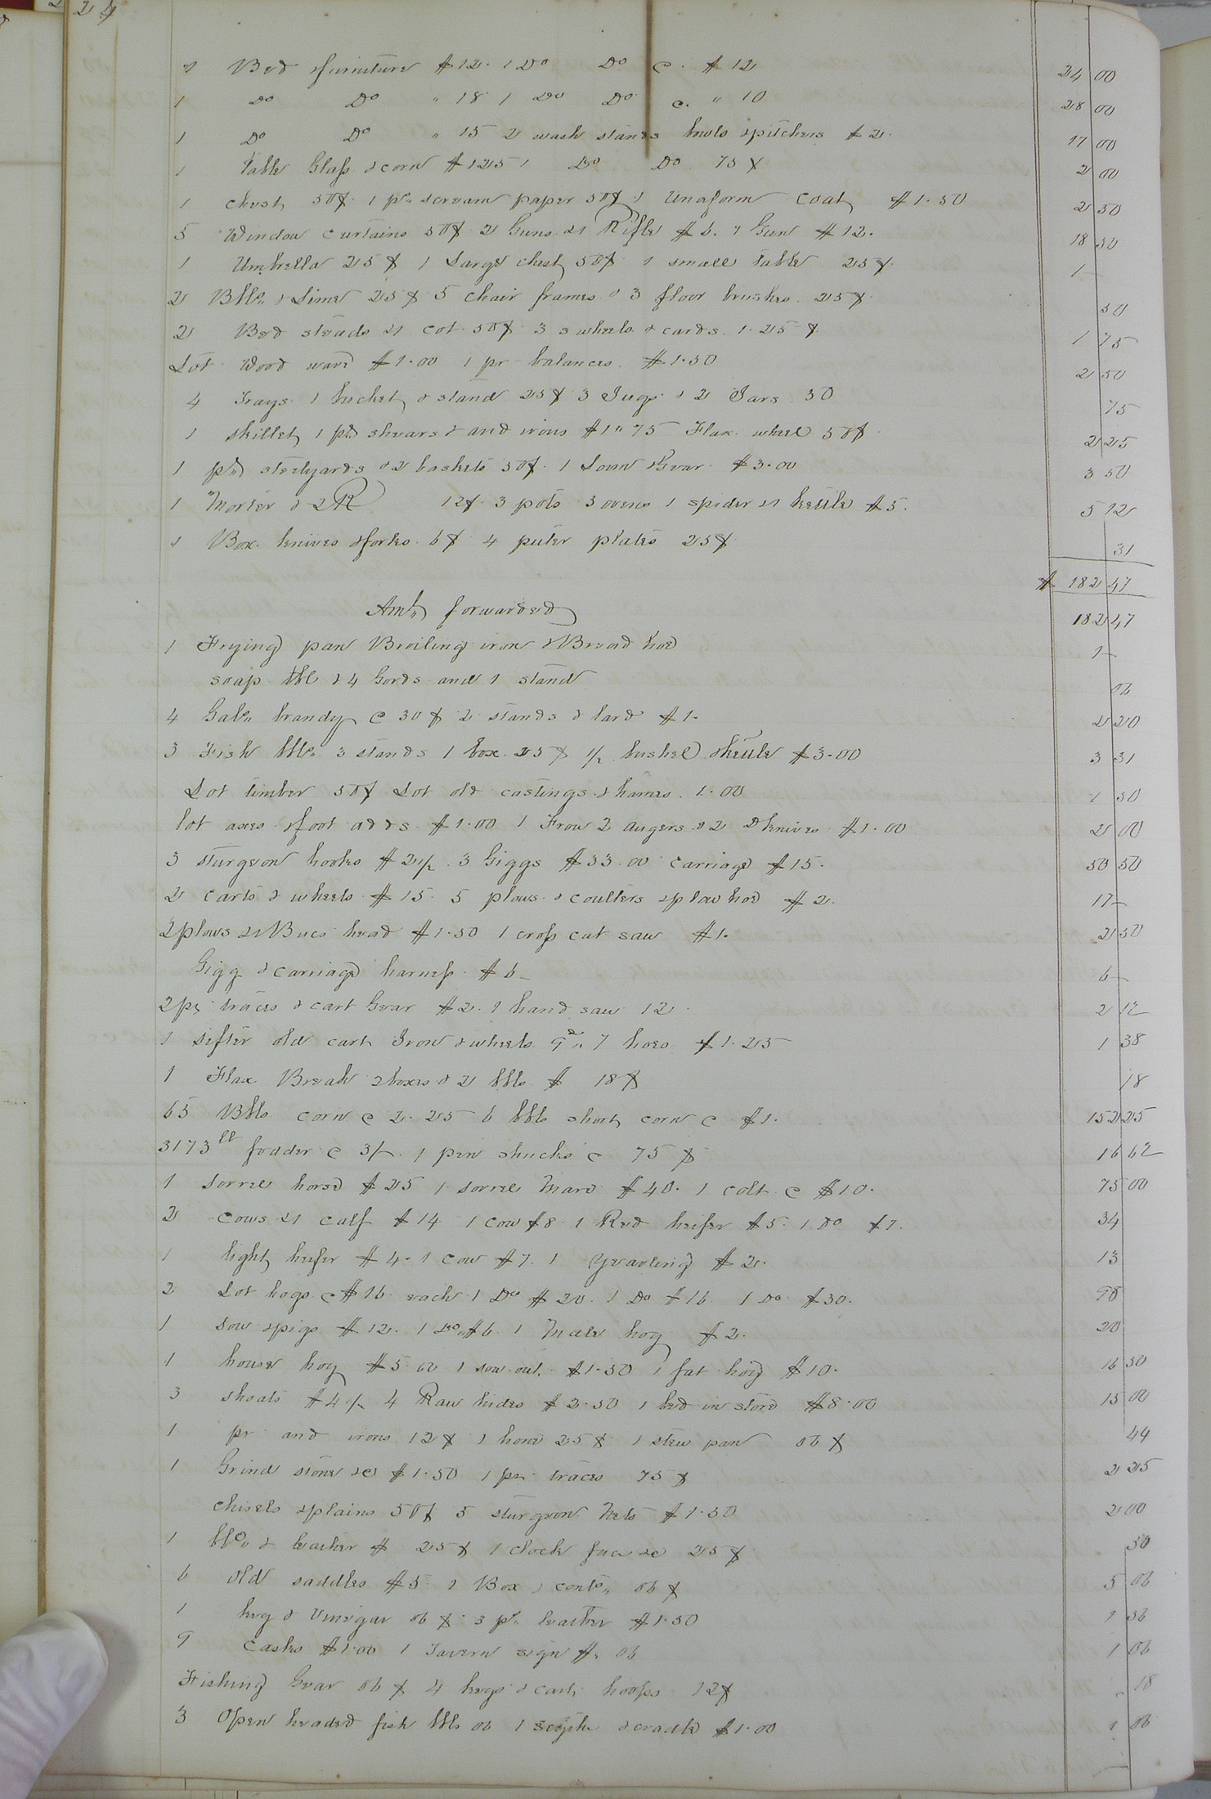 224
1 Bed & furniture $12. 1 Do Do @ $12 24 00
1 Do Do " 18 1 Do Do @ " 10 28 00
1 Do Do " 15 2 wash stands bowls & pitchers $2. 17 00
1 Table Glass & corn $1 25 1 Do Do 75 ¢ 2 00
1 chest 50¢ 1 pc screan paper 50¢ 1 Unaform Coat $1.50 2 50
5 Window curtains 50¢ 2 Guns & 1 Rifle $6. 1 Gun $12. 18 50
1 Umbrella 25¢ 1 Large chest 50¢ 1 small table 25¢ 1 —
2 Bbls & Lime 25¢ 5 chair frames & 3 floor brushes 25¢ 50
2 Bed steads & 1 cot 50¢ 3 s wheels & cards 1.25 ¢ 1 75
Lot Wood ware $1.00 1 pr balances $1.50 2 50
4 Trays 1 bucket & stand 25¢ 3 Jugs & 2 Jars 50 75
1 skillet 1 pr shears & and irons $1"75 Flax wheel 50¢ 2 25
1 pr steelyards & 2 baskets 50¢ 1 Loom & Gear $3.00 3 50
1 Morter & 2 R 12¢ 3 pots 3 ovens 1 spider & 1 kettle $5. 5 12
1 Box knives & forks 6¢ 4 puter plates 25¢ 31
$ 182 47
Amt forwarded 182 47
1 Frying pan Broiling iron & Broad hoe 1 —
soap bbl & 4 Gords and 1 stand 06
4 Gals brandy @ 30¢ 2 stands & lard $1. 2 20
3 Fish bbls 3 stands 1 box 25¢ 1/2 bushel & kettle $3.00 3 31
Lot timber 50¢ Lot old castings & hames 1.00 1 50
lot axes & foot adds $1.00 1 Frow 2 augers & 2 D knives $1.00 2 00
3 sturgeon hooks $2 1/2 3 Giggs $33.00 carriage $15. 50 50
2 carts & wheels $15 5 plows & coulters & plow hoe $2. 17 —
2 plows & 1 Bucs head $1.50 1 cross cut saw $1. 2 50
Gigg & carriage harness $6 — 6 —
2 prs traces & cart Gear $2. 1 hand saw 12 2 12
1 sifter old cart Iron & wheels 7 hoes $1.25 1 38
1 Flax Break 2 boxes & 2 bbls $ 18¢ 18
65 Bbls corn @ 2.25 6 bbls short corn @ $1. 152 25
3173 lb fodder @ 3/ 1 pen shucks @ 75¢ 16 62
1 sorrel horse $25 1 sorrel Mare $40. 1 colt @ $10. 75 00
2 cows & 1 calf $14 1 cow $8 1 Red heifer $5. 1 Do $7. 34
1 light heifer $4. 1 cow $7. 1 yearling $2. 13
2 Lot hogs @ $16 each 1 Do $20. 1 Do $16 1 Do $30. 98
1 sow & pigs $12. 1 Do $6 1 Male hog $2. 20
1 house hog $5 00 1 sow out $1.50 1 fat hog $10. 16 50
3 shoats $4 1/2 4 Raw hides $2.50 1 bed in store $8.00 15 00
1 pr and irons 12¢ 1 hone 25¢ 1 stew pan 06 ¢ 44
1 Grind stone &c $1.50 1 pr traces 75¢ 2 25
chisels & plains 50¢ 5 sturgeon Nets $1.50 2 00
1 bbl & leather $ 25¢ 1 clock face &c 25¢ 50
6 old saddles $5 1 Box & conts 06 ¢ 5 06
1 keg & Vinegar 06 ¢ 3 ps leather $1.50 1 56
9 casks $1.00 1 Tavern sign $ 06 1 06
Fishing Gear 06 ¢ 4 kegs & cart hoops 12¢ 18
3 Open headed fish bbls 06 1 scythe & cradle $1.00 1 06